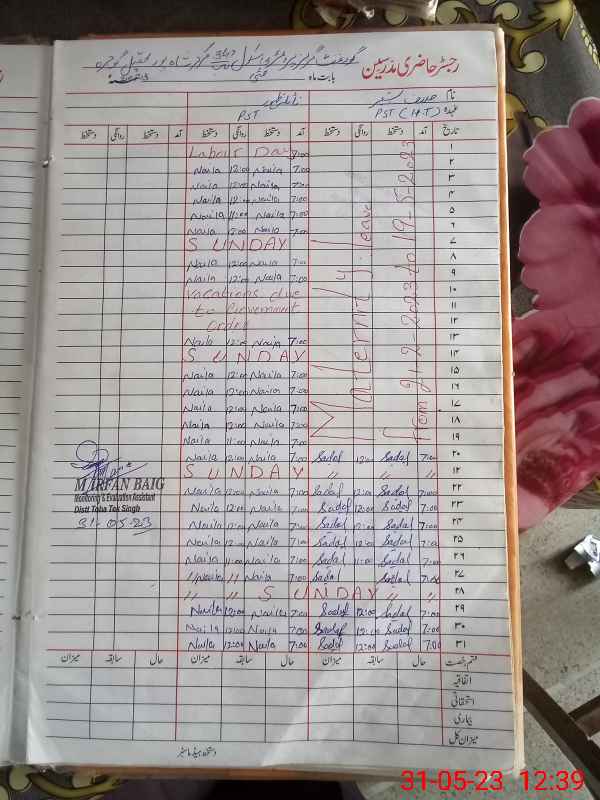 رجسٹر حاضری مدرسین
گورنمنٹ گرلز پرائمری سکول
بابت ماہ مئی
نام صدف
عہدہ PST (H.T) PST
تاریخ آمد دستخط روانگی دستخط آمد دستخط روانگی دستخط آمد دستخط روانگی دستخط
۱ Labour Day 7:00
۲ 7:00 Naila 12:00 Naila
۳ 7:00 Naila 12:00 Naila
۴ 7:00 Naila 12:00 Naila
۵ 7:00 Naila 11:00 Naila
۶ 7:00 Naila 12:00 Naila
۷ SUNDAY
۸ 7:00 Naila 12:00 Naila
۹ 7:00 Naila 12:00 Naila
۱۰ Vacations due
۱۱ to Government
۱۲ order
۱۳ 7:00 Naila 12:00 Naila
۱۴ SUNDAY
۱۵ 7:00 Naila 12:00 Naila
۱۶ 7:00 Naila 12:00 Naila
۱۷ 7:00 Naila 12:00 Naila
۱۸ 7:00 Naila 12:00 Naila
۱۹ 7:00 Naila 11:00 Naila
Maternity leave
From 21-2-2023 to 19-5-2023
۲۰ 7:00 Sadaf 12:00 Sadaf 7:00 Naila 12:00 Naila
۲۱ " " " SUNDAY
۲۲ 7:00 Sadaf 12:00 Sadaf 7:00 Naila 12:00 Naila
۲۳ 7:00 Sadaf 12:00 Sadaf 7:00 Naila 12:00 Naila
۲۴ 7:00 Sadaf 12:00 Sadaf 7:00 Naila 12:00 Naila
۲۵ 7:00 Sadaf 12:00 Sadaf 7:00 Naila 12:00 Naila
۲۶ 7:00 Sadaf 11:00 Sadaf 7:00 Naila 11:00 Naila
۲۷ 7:00 Sadaf Sadaf 7:00 Naila " Naila
۲۸ " " SUNDAY " "
۲۹ 7:00 Sadaf 12:00 Sadaf 7:00 Naila 12:00 Naila
۳۰ 7:00 Sadaf 12:00 Sadaf 7:00 Naila 12:00 Naila
۳۱ 7:00 Sadaf 12:00 Sadaf 7:00 Naila 12:00 Naila
M.IRFAN BAIG
Monitoring & Evaluation Assistant
Distt Toba Tek Singh
31-05-23
قسم رخصت حال سابقہ میزان حال سابقہ میزان حال سابقہ میزان
اتفاقیہ
استحقاقی
بیماری
میزان کل
دستخط ہیڈ ماسٹر
31-05-23 12:39